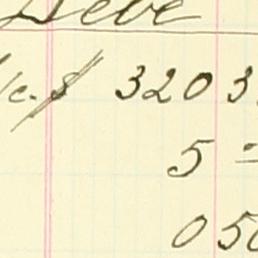 Debe
/c. $ 3203
5 =
050